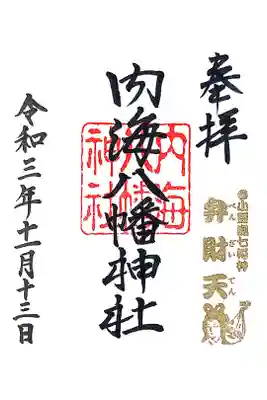 奉拝
小豆島七福神
弁財天
べんざいてん
内海八幡神社
内海八幡神社
令和三年十一月十三日